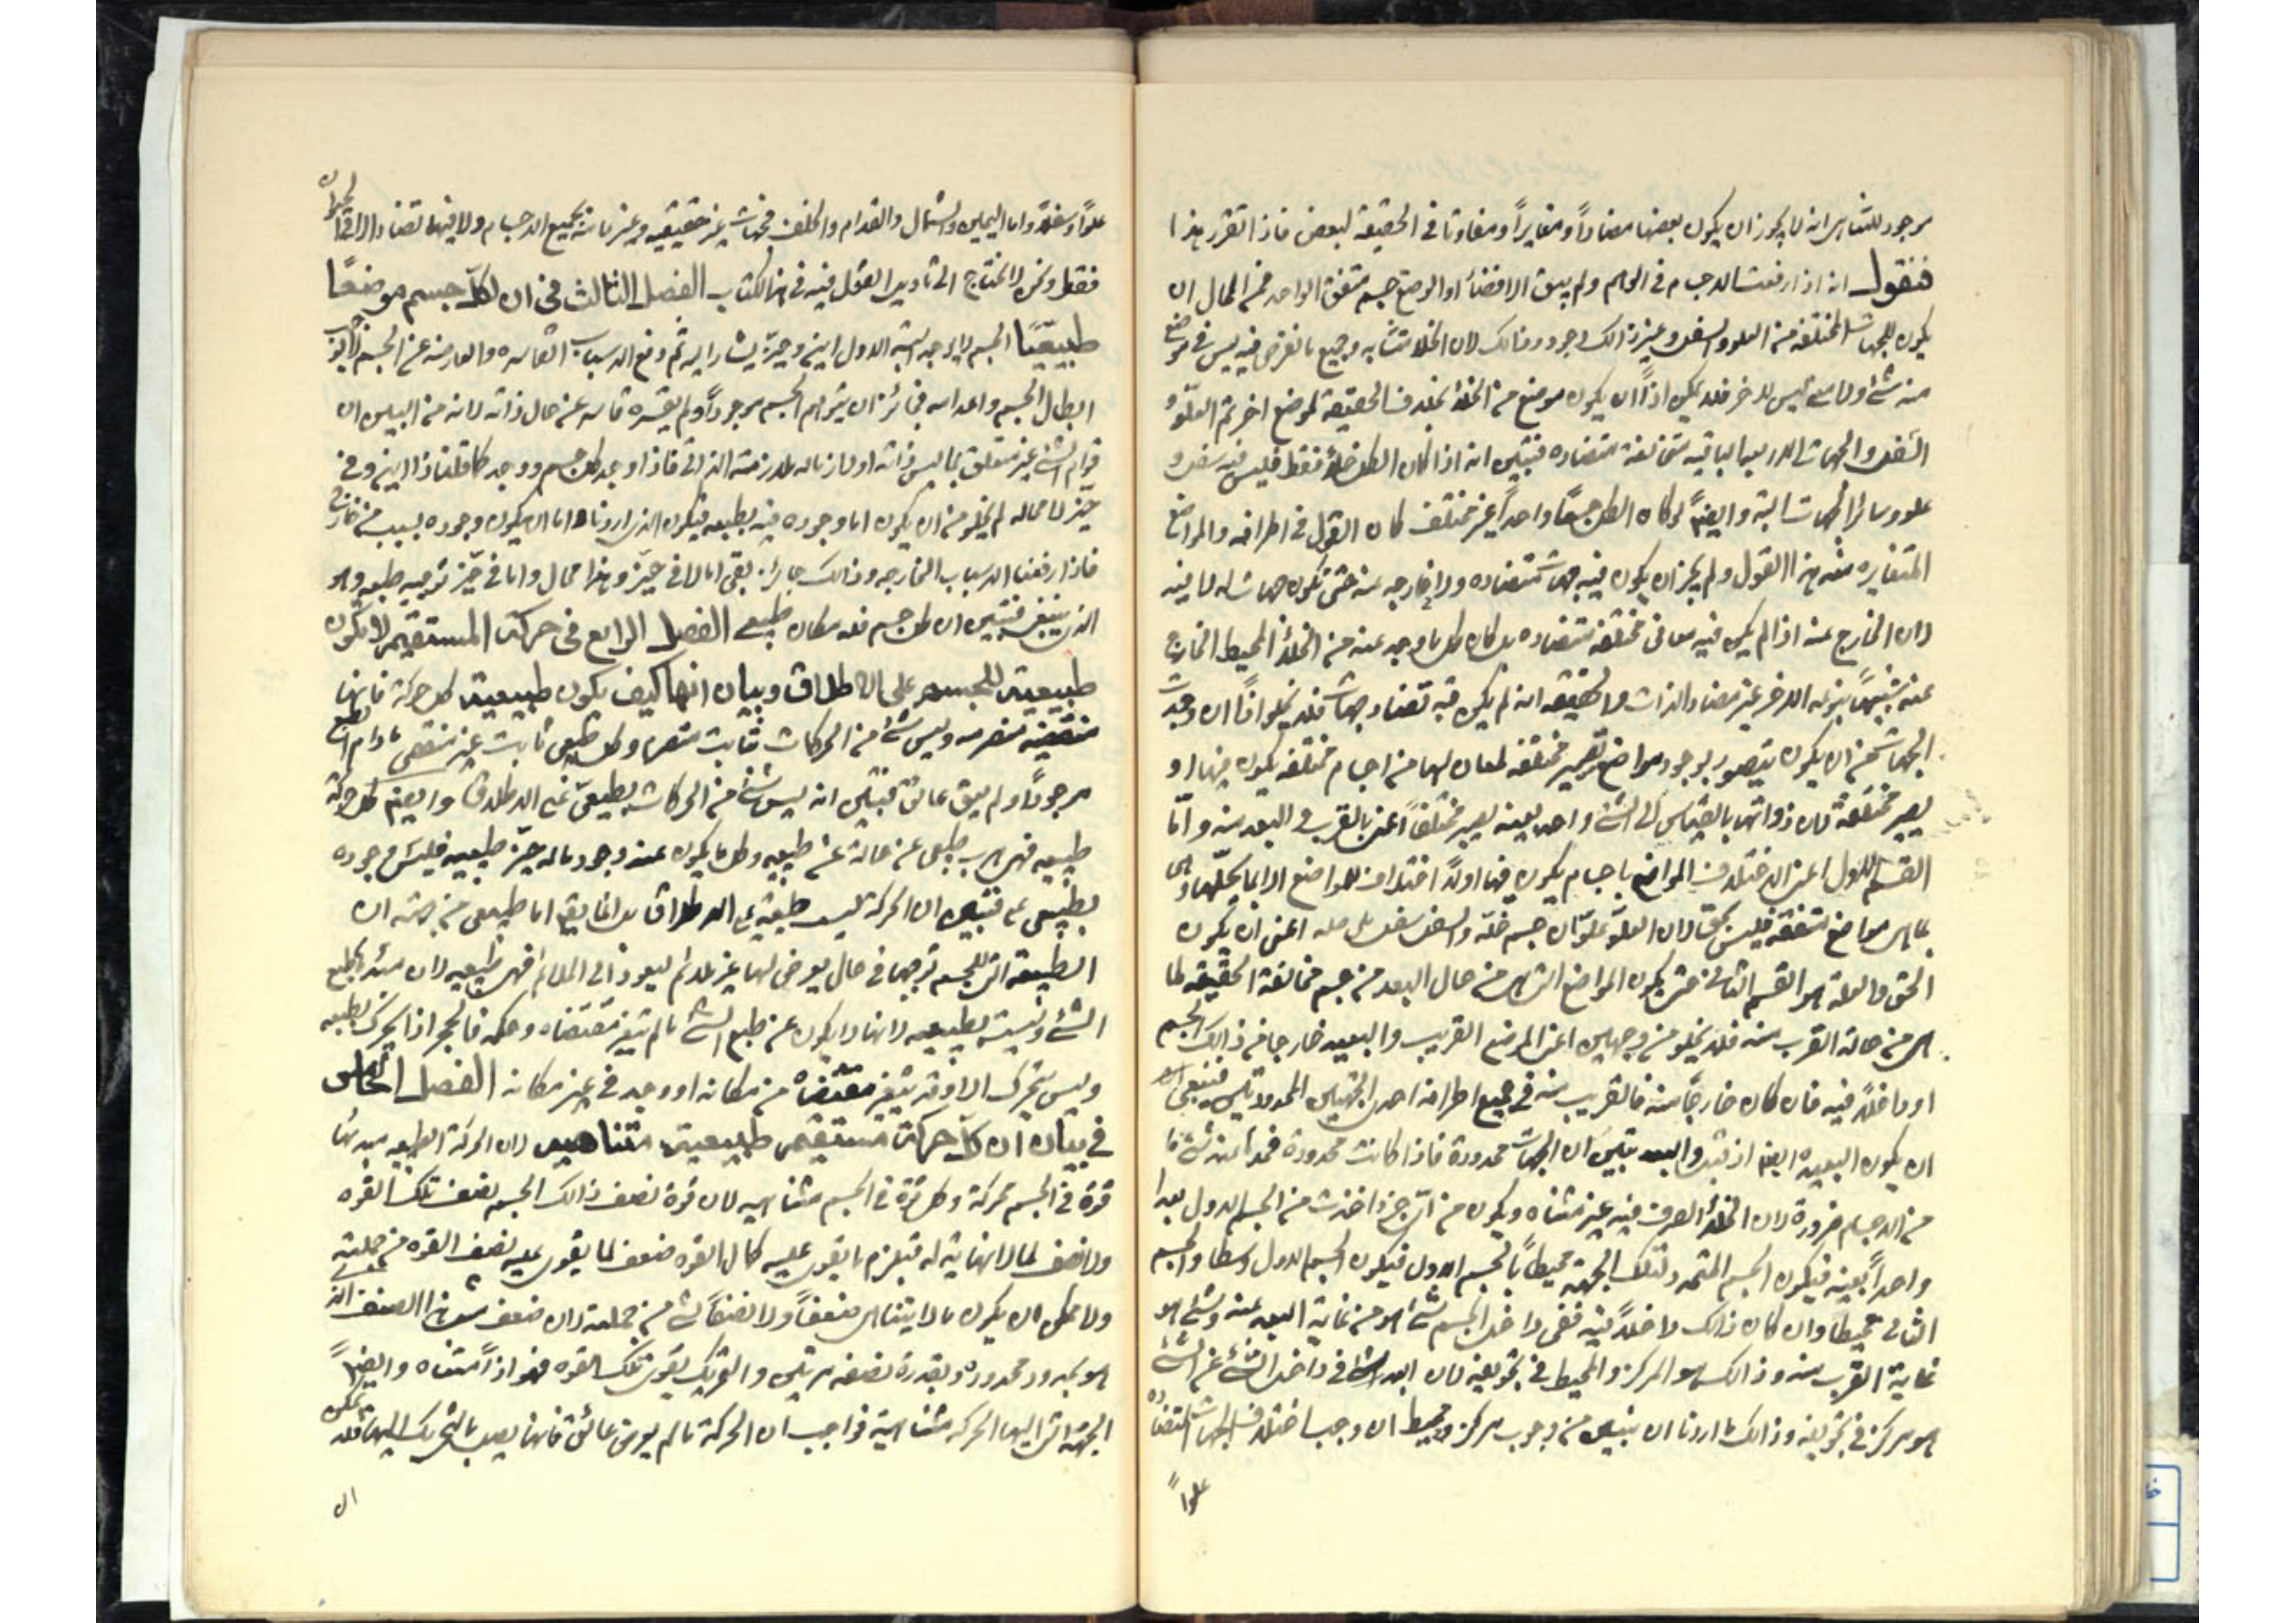 موجود للتناهى انه لا يجوز ان يكون بعضها مضاداً ومغايراً ومفاوتا فى الحقيقة لبعض فاذا تقرر هذا
فنقول انه اذا رفعت الاجسام فى الوهم ولم يبق الا فضاء او لوضع جسم متفق الواحد فمن المحال ان
يكون للجهات المختلفة من العلو والسفل وغير ذالك وجود وذالك لان الخلا متشابه وجميع ما نفرض فيه ليس فى موضع
منه شئ ولا معنى ليس للاخر فلا يمكن اذاً ان يكون موضع من الخلأ بخلاف الحقيقة لموضع اخر ثم العلوّ و
السّفل والجهات الاربعة الباقيه متخالفة متضاده فتبيّن انه اذا كان الكل خلأ فقط فليس فيه سفل و
علو وسائر الجهات البتة وايضاً لو كان الكل جسماً واحداً غير مختلف كان القول فى اطرافه والمواضع
المتغايره منه هذا القول ولم يجز ان يكون فيه جهات متضاده ولا خارجه عنه حتى تكون جهات له لا فيه
لان الخارج عنه اذا لم يكن فيه معانى مختلفة متضاده بل كان كل ما يوجد عنه من الخلأ المحيط الخارج
عنه شبيهاً بنوعه الاخر غير مضاد الذات ولا لحقيقه انه لم يكن فيه تضاد جهات فلا يخلو اذاً ان وجدت
الجهات من ان يكون يتصور بوجود مواضع تصير مختلفه لمعان لها من اجسام مختلفه يكون فيها او
يصير مختلفة لان ذواتها بالقياس الى الشئ واحد بعينه يصير مختلفاً اعنى بالقرب و البعد منه و امّا
القسم الاول اعنى اختلاف المواضع باجسام يكون فيها اولاً اختلاف المواضع انما يحلّها وهى
ما هى مواضع متفقه فليس بحق لان العلوّ علوّ لان جسم خفّه والسفل سفل بل حله اعنى ان يكون
الحق والعلة هو القسم الثانى حتى يكون المواضع التى هى من حال البعد من جسم مخالفة الحقيقه لما
هى من حالة القرب منه فلا يخلو من وجهين اعنى الموضع القريب والبعيد خارجا من ذالك الجسم
او داخلاً فيه فان كان خارجاً منه فالقريب منه فى جميع اطرافه احدى الجهتين المحدودتين فينبغى
ان يكون البعيده ايضا اذ ثبت و تبيّن ان الجهات محدودة فاذا كانت محدودة فحدّ البعد منه شئ ما
من الاجسام ضرورة لان الخلأ الصرف فيه غير متناه ويكون من اىّ جزء اخذت من الجسم الاول بعدا
واحداً بعينه فيكون الجسم المتحدد لتلك الجهة محيطاً بالجسم الاول فيكون الجسم الاول وسطا والجسم
الثانى محيطا وان كان ذالك داخلاً فيه ففى داخل الجسم شئ هو من غاية البعد عنه وشئ هو
غاية القرب منه وذالك هو المركز والمحيط فى تجويفه لان ابعد شئ فى داخل الشئ عن الشئ
هو مركز فى تجويفه وذالك ما اردنا ان نبيّن من وجوب مركز ومحيط ان وجب اختلاف الجهات المتضاده
علواً
علوّا وسفلا واما اليمين والشمال والقدام والخلف فجهات غير حقيقيه وغير ثابتة بجميع الاجسام ولا فيها تضاد الا فى الحيوان
فقط ونحن لا نحتاج الى تاويل القول فيه فى هذا الكتاب الفصل الثالث فى ان لكل جسم موضعًا
طبيعيًا الجسم لا يوجد البتة الا وله اين وحيّز يشار اليه ثم رفع الاسباب القاسره والعارضه عن الجسم لا يوجب
ابطال الجسم واعدامه فجائز ان يتوهم الجسم موجوداً ولم يقسره قاسر عن حال ذاته لانه من البيّن ان
قوام الشئ غير متعلق بما ليس ذاته او لازما له ملازمة الذاتى فاذا وجد كل جسم ووجد كما قلنا ذا اين وفى
حيّز لا محاله لم يخلو من ان يكون اما وجوده فيه بطبعه فيكون الذى اردناه واما ان يكون وجوده بسبب من خارج
فاذا رفعنا الاسباب الخارجه وذالك جائز بقى اما لا فى حيّز وهذا محال واما فى حيّز توجبه طبعه وهو
الذى ينبغى فتبيّن ان كل جسم فله مكان طبيعى الفصل الرابع فى حركت المستقيمه لا تكون
طبيعيت للجسم على الاطلاق وبيان انها كيف يكون طبيعيت كل حركة فانها
منقضيه متصرمه وليس شئ من الحركات ثابت متصرم وكل طبيعى ثابت غير منقضى ما دام الطبع
موجوداً ولم يعق عائق فتبيّن انه ليس شئ من الحركات بطبيعىّ على الاطلاق وايضاً كل حركة
طبيعيه فهى هرب طبيعى عن حالة غير طبيعيه وكل ما يكون عنه وجود ماله حيّز طبيعيه فليس وجوده
بطبيعى له فتبيّن ان الحركة ليست طبيعية على الاطلاق بل انها يقع اما طبيعى من جهته ان
الطبيعة التى للجسم توجبها فى حال يعرض لها غير ملائم ليعود الى الملائم فهى طبيعيه لان مبدأه طبع
الشئ وليست بطبيعيه لانها لا يكون عن طبع الشئ ما لم يتغير مقتضاه وحكمه فالحجر اذا يحرك بطبعه
وليس يتحرك الا وقد يتغير مقتضاه من مكانه او وجد فى غير مكانه الفصل الخامس
فى بيان ان كل حركت مستقيمى طبيعيت متناهيى لان الحركة الطبيعيه مبدئها
قوة فى الجسم محركة وكل قوة فى الجسم متناهيه لان قوة نصف ذالك الجسم نصف تلك القوه
ولا نصف لما لا نهاية له فيلزم ما يقوى عليه كمال القوه ضعف لما يقوى عليه نصف القوه من جملته
ولا يمكن ان يكون ما لا يتناهى ضعفاً ولا نصفاً لشئ من جملته لان ضعف هذا الصنف الذى
هو بحدود محدوده وبقدرة نصفه مرتين والتحريك يقوى تلك القوه فهو اذاً متناه وايضاً
الجهة التى اليها الحركه متناهية فواجب ان الحركة ما لم يعرض عائق فانها يصيب بالتحريك اليها فلا يمكن
ان